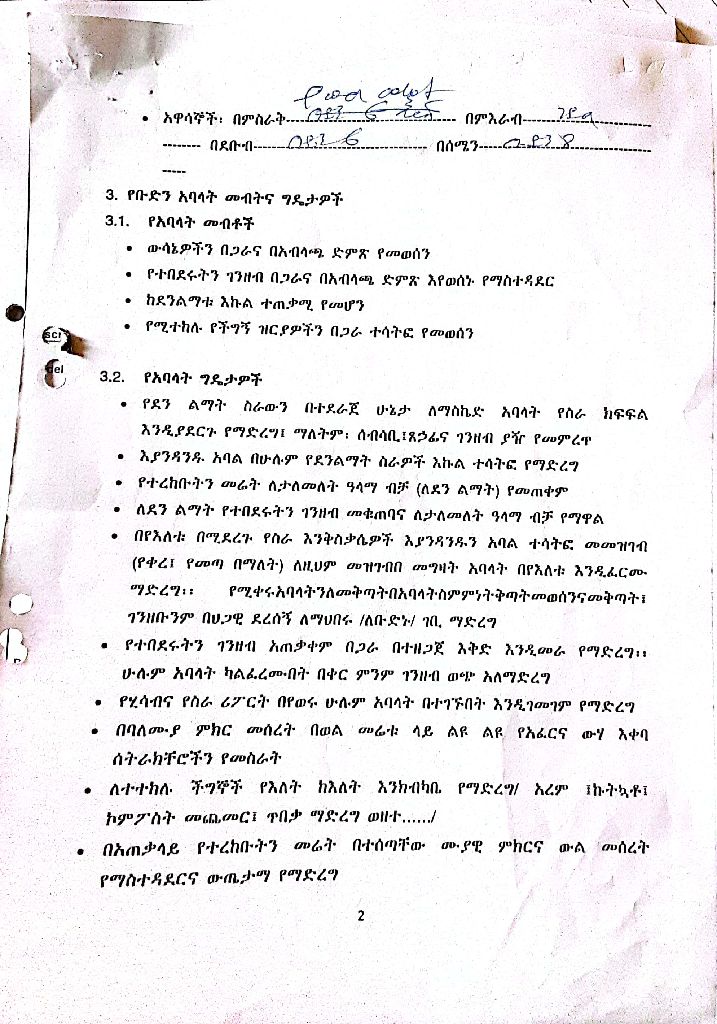 • አዋሳኞች፡ በምስራቅ--- በምእራብ---
--- በደቡብ--- በሰሜን---
-----
3. የቡድን አባላት መብትና ግዴታዎች
3.1. የአባላት መብቶች
• ውሳኔዎችን በጋራና በአብላጫ ድምጽ የመወሰን
• የተበደሩትን ገንዘብ በጋራና በአብላጫ ድምጽ እየወሰኑ የማስተዳደር
• ከደንልማቱ እኩል ተጠቃሚ የመሆን
• የሚተከሉ የችግኝ ዝርያዎችን በጋራ ተሳትፎ የመወሰን
3.2. የአባላት ግዴታዎች
• የደን ልማት ስራውን በተደራጀ ሁኔታ ለማስኬድ አባላት የስራ ክፍፍል
እንዲያደርጉ የማድረግ፤ ማለትም፡ ሰብሳቢ፤ጸኃፊና ገንዘብ ያዥ የመምረጥ
• እያንዳንዱ አባል በሁሉም የደንልማት ስራዎች እኩል ተሳትፎ የማድረግ
• የተረከቡትን መሬት ለታለመለት ዓላማ ብቻ (ለደን ልማት) የመጠቀም
• ለደን ልማት የተበደሩትን ገንዘብ መቁጠባና ለታለመለት ዓላማ ብቻ የማዋል
• በየእለቱ በሚደረጉ የስራ እንቅስቃሴዎች እያንዳንዱን አባል ተሳትፎ መመዝገብ
(የቀረ፤ የመጣ በማለት) ለዚህም መዝግብበ መግዛት አባላት በየእለቱ እንዲፈርሙ
ማድረግ፡፡ የሚቀሩአባላትንለመቅጣትበአባላትስምምነትቅጣትመወሰንናመቅጣት፤
ገንዘቡንም በህጋዊ ደረሰኝ ለማህበሩ /ለቡድኑ/ ገቢ ማድረግ
• የተበደሩትን ገንዘብ አጠቃቀም በጋራ በተዘጋጀ እቅድ እንዲመራ የማድረግ፡፡
ሁሉም አባላት ካልፈረሙበት በቀር ምንም ገንዘብ ወጭ አለማድረግ
• የሂሳብና የስራ ሪፖርት በየወሩ ሁሉም አባላት በተገኙበት እንዲገመገም የማድረግ
• በባለሙያ ምክር መሰረት በወል መሬቱ ላይ ልዩ ልዩ የአፈርና ውሃ እቀባ
ሰትራክቸሮችን የመስራት
• ለተተከሉ ችግኞች የእለት ከእለት እንክብካቤ የማድረግ/ አረም ፤ኩትኳቶ፤
ኮምፖስት መጨመር፤ ጥበቃ ማድረግ ወዘተ....../
• በአጠቃላይ የተረከቡትን መሬት በተሰጣቸው ሙያዊ ምክርና ውል መሰረት
የማስተዳደርና ውጤታማ የማድረግ
2